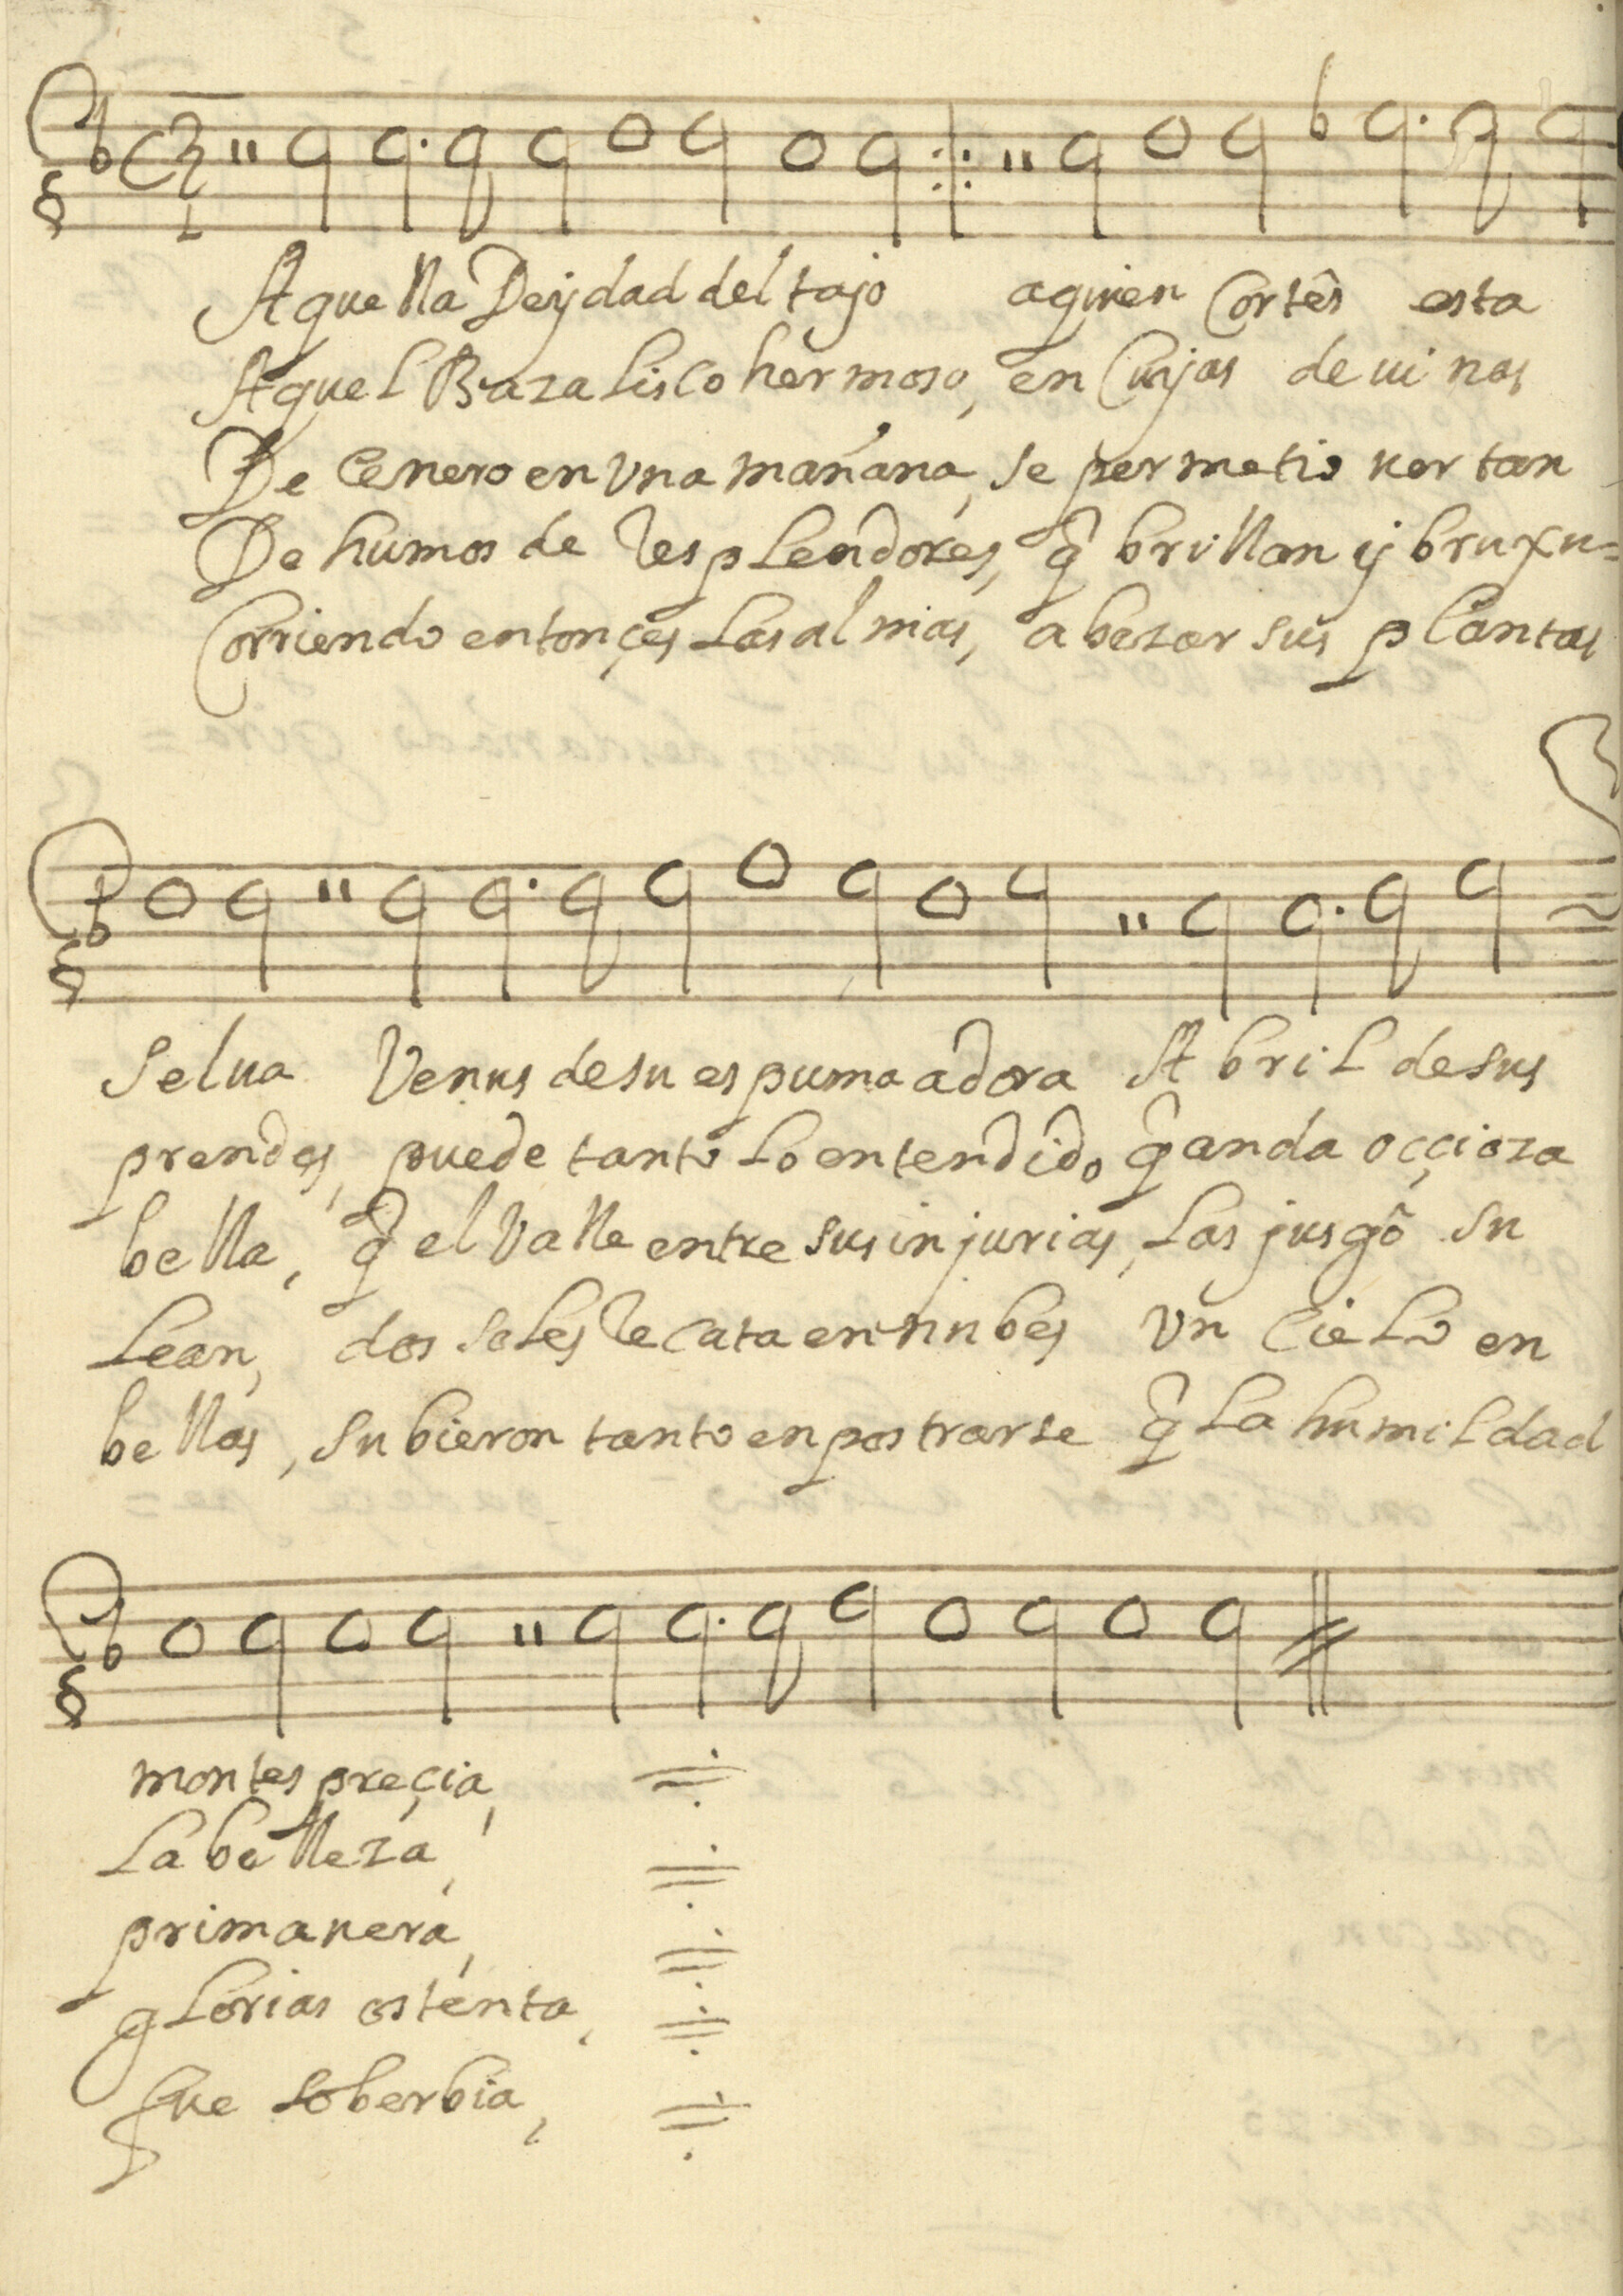 Aquella Deydad del tajo aquien Cortês esta
Aquel Bazalisco hermoso, en Cuyas deuinas
De Cenero en vna mañana, se permetio ver tan
De humos de resplendores, q̃ brillan y bruxu=
Corriendo entonçes Las almas, abezar sus plantas
Selua Venus de su espuma adora Abril de sus
prendes, puede tanto Lo entendido q̃ anda oççioza
bella, q̃ el Valle entre sus injurias, Las jusgô su
Lean, dos soles recata en nubes vn Cielo en
bellas, subieron tanto en postrarse q̃ La humildad
montes preçia,
La belleza,
primauera,
glorias ostenta,
fue soberbia,